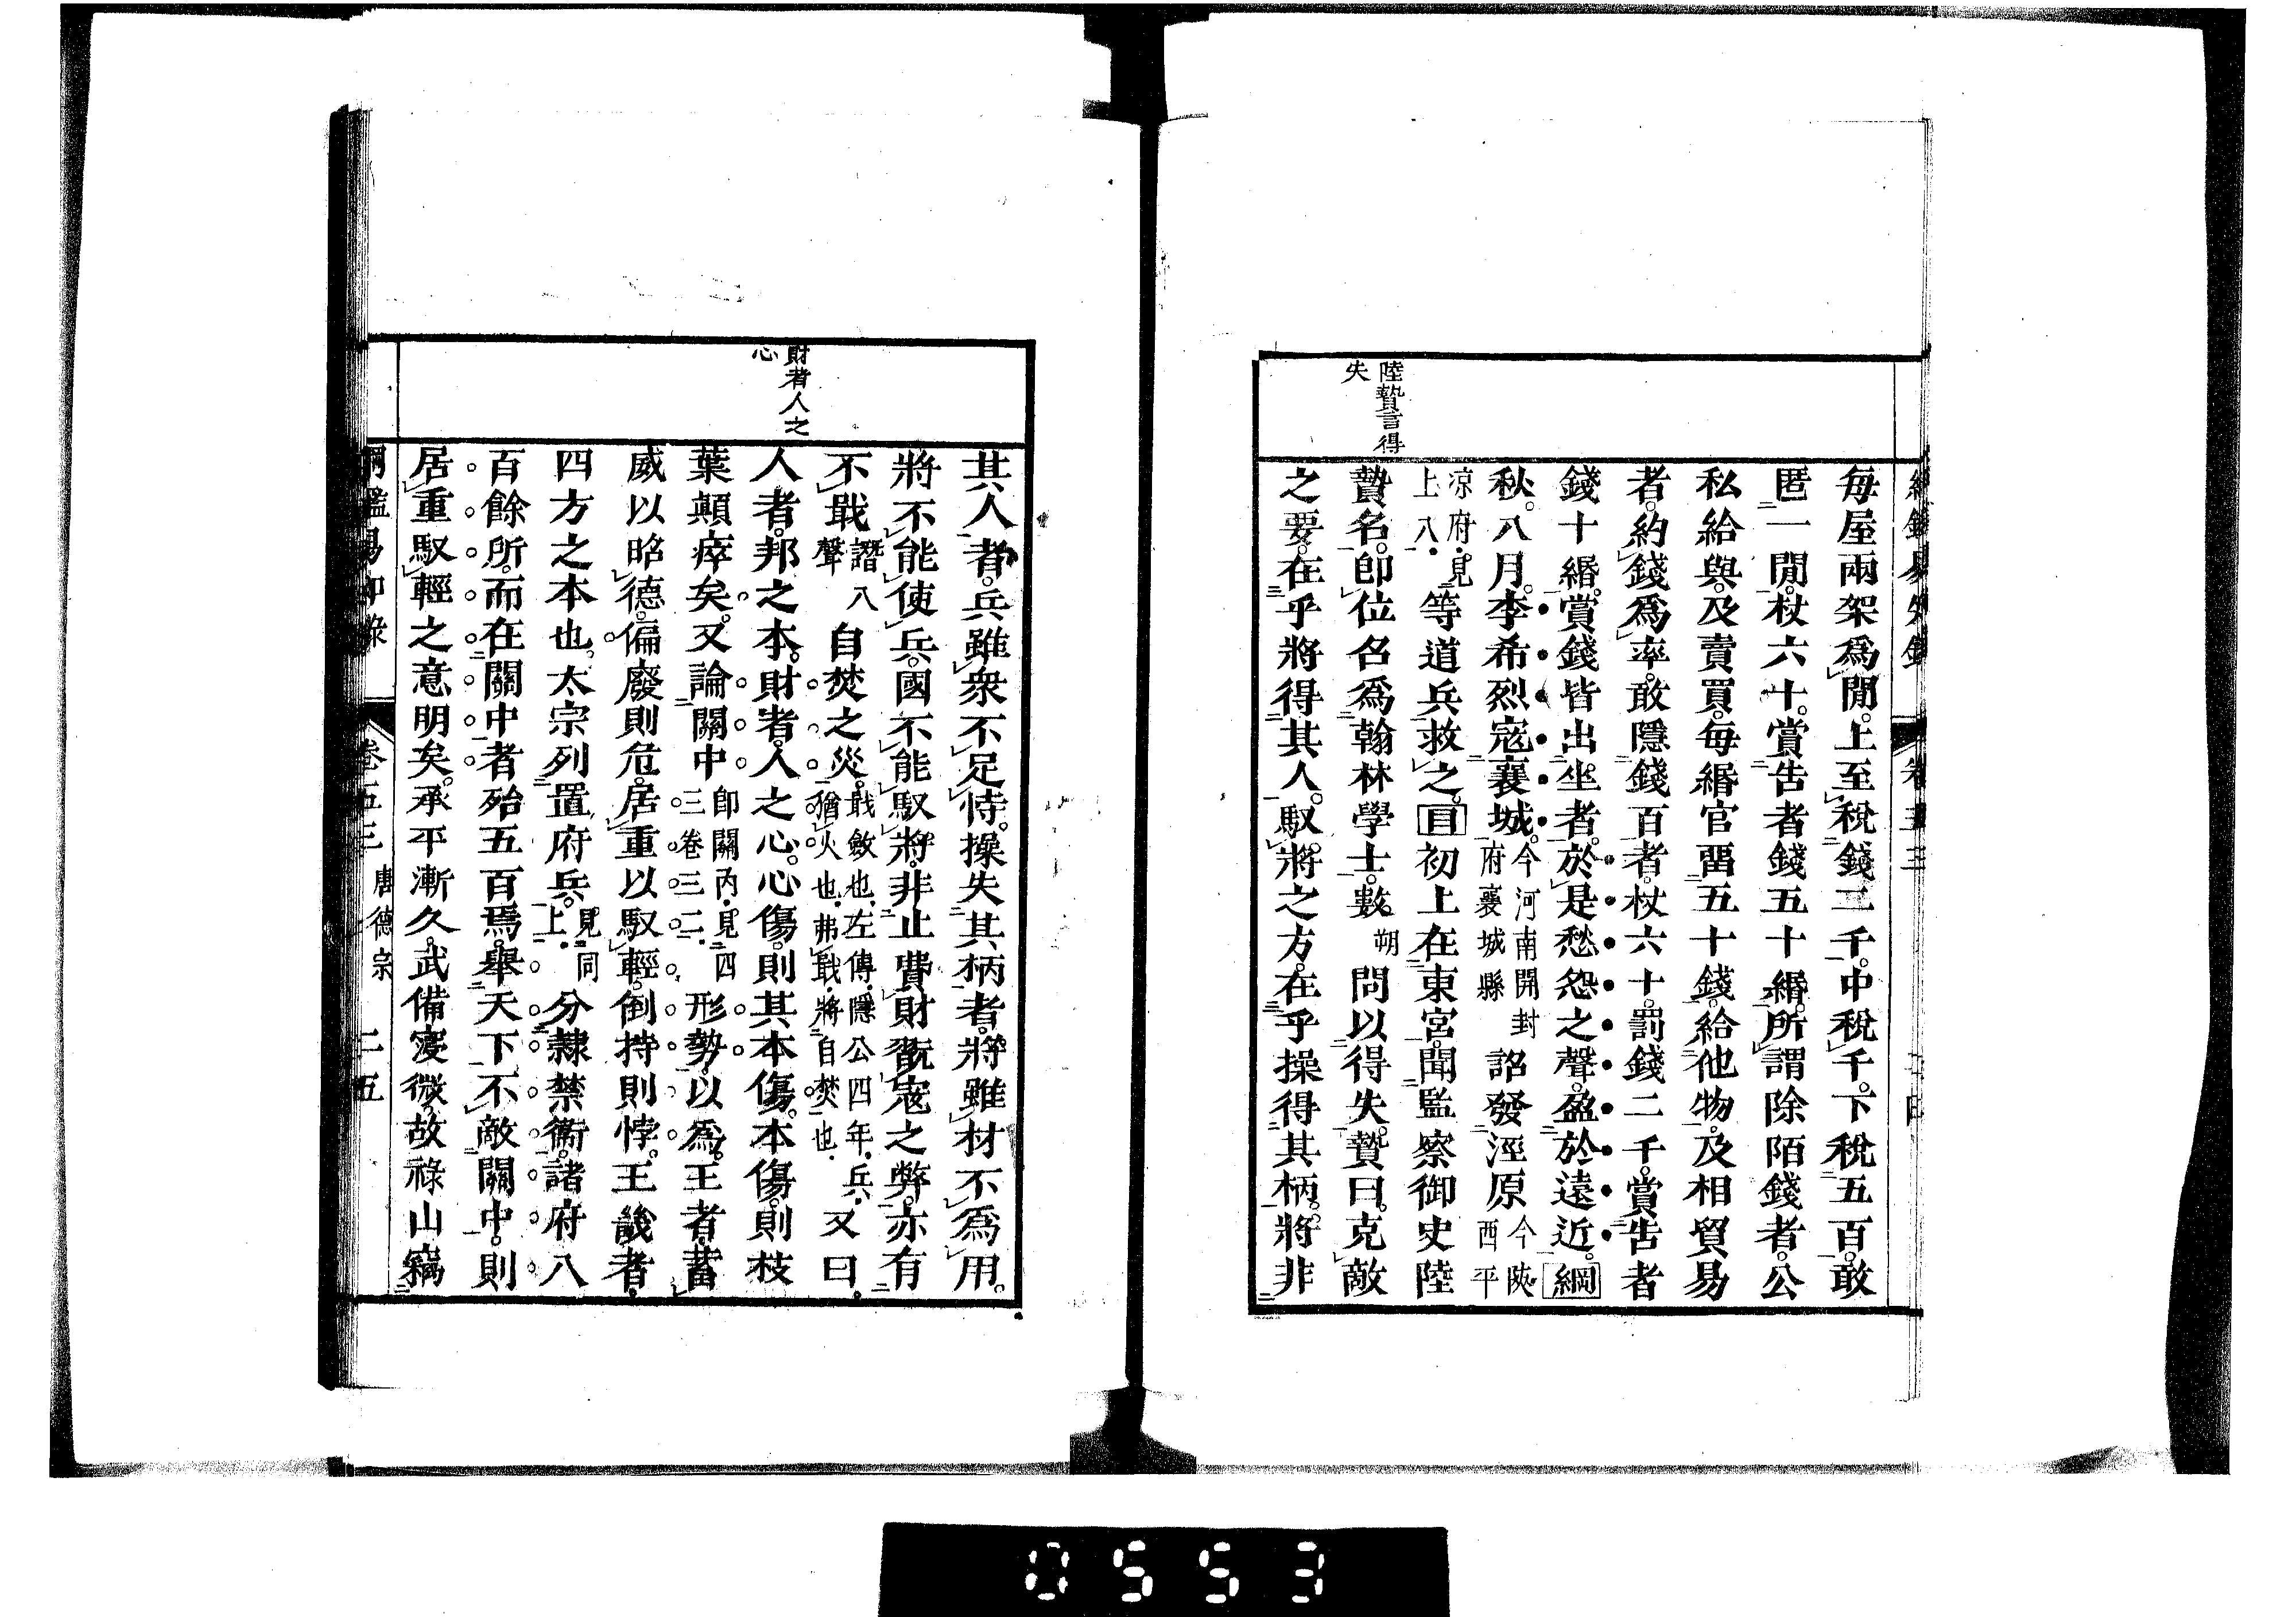 陸贄言得
失
每屋兩架爲閒。上至稅錢二千。中稅千。下稅五百。敢
匿一閒。杖六十。賞告者錢五十緡。所謂除陌錢者。公
私給與。及賣買。每緡官畱五十錢。給他物。及相貿易
者。約錢爲率。敢隱錢百者。杖六十。罰錢二千。賞告者
錢十緡。賞錢皆出坐者。於是愁怨之聲。盈於遠近。綱
秋。八月。李希烈寇襄城。今河南開封府襄城縣詔發涇原今陝西平
凉府。見上八。等道兵救之。目初上在東宮。聞監察御史陸
贄名。卽位名爲翰林學士。數朔問以得失。贄曰。克敵
之要。在乎將得其人。馭將之方。在乎操得其柄。將非
卷五三
財者人之
心
其人者。兵雖衆不足恃。操失其柄者。將雖材不爲用。
將不能使兵。國不能馭將。非止費財翫寇之弊。亦有
不戢譖八聲自焚之災。戢斂也。左傳。隱公四年。兵。猶火也。弗戢。將自焚也。又曰。
人者。邦之本。財者。人之心。心傷。則其本傷。本傷。則枝
葉顚瘁矣。又論關中卽關內。見四三卷三二。形勢。以爲。王者。蓄
威以昭德。偏廢則危。居重以馭輕。倒持則悖。王畿者。
四方之本也。太宗列置府兵。見同上。分隷禁衞。諸府八
百餘所。而在關中者殆五百焉。舉天下。不敵關中。則
居重馭輕之意明矣。承平漸久。武備寖微。故祿山竊
綱鑑易知錄 卷五三 唐德宗 二五
0553